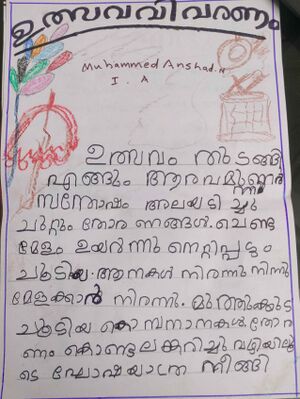 ഉത്സവവിവരണം
Muhammed Anshad. N
I. A
ഉത്സവം തുടങ്ങി
എങ്ങും ആരവമുണർന്നു
സന്തോഷം അലയടിച്ചു
ചുറ്റും തോരണങ്ങൾ. ചെണ്ട
മേളം ഉയർന്നു നെറ്റിപ്പട്ടം
ചൂടിയ ആനകൾ നിരന്നു നിന്നു
മേളക്കാർ നിരന്നു. മുത്തുക്കുട
ചൂടിയ കൊമ്പനാനകൾ. തോര
ണം കൊണ്ടലങ്കരിച്ച വഴിയിലൂ
ടെ ഘോഷയാത്ര നീങ്ങി